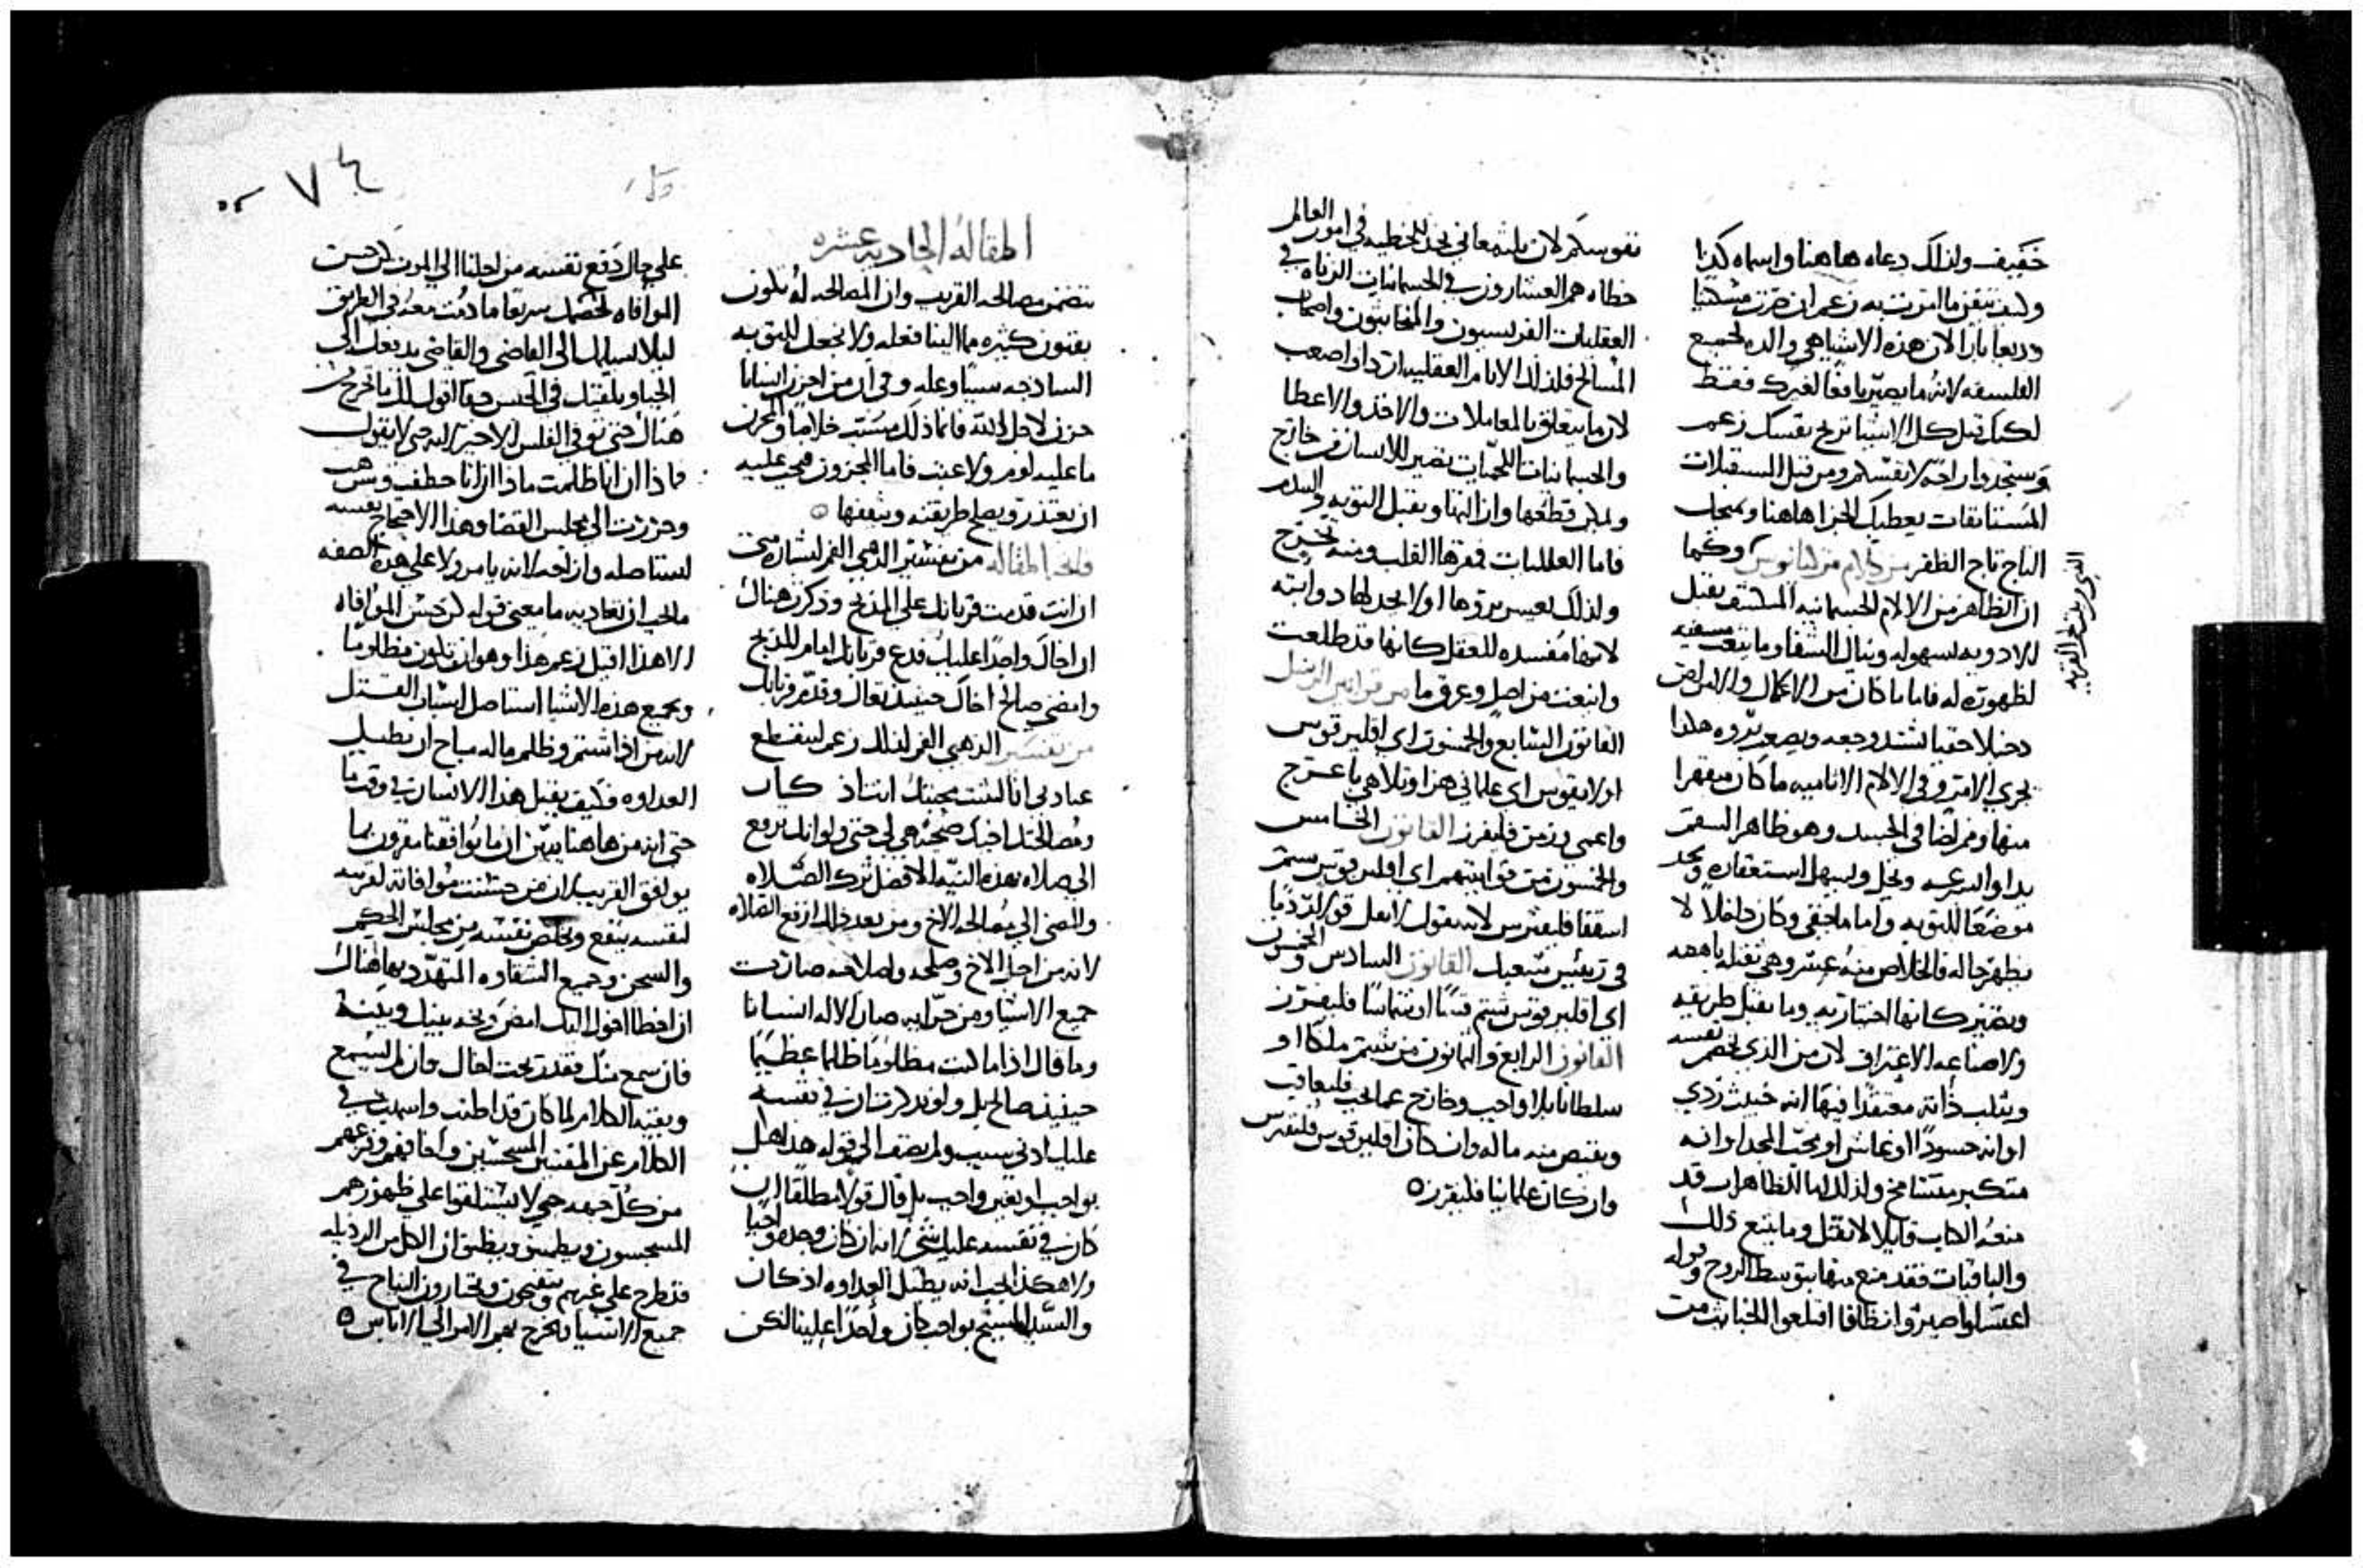 خفيف ولذلك دعاه هاهنا واسماه كذا
وديعا بارا لان هذه الاشيا هي والده لجميع
الفلسفه لانه ما يصير نافعا لغيرك فقط
لكنك قبل كل الاشيا تربح نفسك زعم
وستجدوا راحه لانفسكم ومن قبل المستقبلات
المستانفات يعطيك الجزا هاهنا ويمنحك
التاج تاج الظفر من كلام وكما
ان الظاهر من الالام الجسمانيه المستشف يقبل
الادويه بسهوله وينال الشفا وما يتعب
لظهوره له فاما ما كان من الاعلال والامراض
دخيلا خفيا تشتد وجعه ويصعب بروه هكذا
يجري الامر وفي الالام الاثاميه ما كان
منها وممرضا في الجسد وهو ظاهر السقم
يداوا بسرعه ويحل ويسهل استعقاره ويجد
موضعا للتوبه واما ما خفي وكان داخلا لا
يظهر حاله فالخلاص منه عسر وهي ثقيله
وتصير كانها اختياريه وما يقبل طريقه
ولا صناعه الاعتراف لان من الذي يخصم نفسه
ويثلب ذاته معتقدا فيها انه خبيث ردي
او انه حسودا او غاش او محب المجد او انه
متكبر متشامخ ولذلك اما الظاهرات قد
منعه الكتاب قايلا لا تقتل وما يتبع ذلك
والباقيات فقد منع منها بتوسط الروح وقوله
اغتسلوا صيروا انظافا اقلعوا الخباثه من
نفوسكم لان ثلثه معاني نجد للخطيه في امور العالم
خطاه هم العشارون في الجسمانيات الزناه في
العقليات الفريسيون والمخانثون واصحاب
المسالخ فلذلك الالام العقليه ازدادوا صعب
لان ما يتعلق بالمعاملات والاخذ والاعطا
والجسمانيات اللحميات تصير للانسان من خارج
ويمكن قطعها وازالتها وتقبل التوبه والندم
فاما العقليات فمقرها القلب ومنه تخرج
ولذلك يعسر بروها او لا يجد لها دوا البته
لانها مفسده للعقل كانها قد طلعت
وانبعثت من اصل وعرق ما من قوانين الرسل
القانون السابع والخمسون اي اقليرقوس
او لايقوس اي علماني هزا وتلاهي باعرج
واعمي وزمن فليفرز القانون الخامس
والخمسون من قوانينهم اي اقليرقوس شتم
اسقفا فليفترس لانه يقول لا تقل قولا رديا
في رييس شعبك القانون السادس والخمسون
اي اقليرقوس شتم قسا او شماسا فليفرز
القانون الرابع والثمانون من شتم ملكا او
سلطانا بلا واجب وخارج عما يجب فليعاقب
ويقتص منه ماله وان كان اقليرقوس فليفترس
وان كان علمانيا فليفرز
المقاله الحاديه عشره
تتضمن مصالحه القريب وان المصالحه له تكون
بفنون كثيره مما الينا فعله ولا نجعل للتوبه
الساذجه سببا وعله وفي ان من احزن انسانا
حزن لاجل الله فانما ذلك يسبب خلاصا والمحزن
ما عليه لوم ولا عتب فاما المحزون فيجب عليه
ان يعتذر ويصلح طريقته ويثقفها
فاتحه المقاله من تفسير الذهبي الفم لبشاره متى
ان انت قدمت قربانك على المذبح وذكرت هناك
ان اخاك واجدا عليك فدع قربانك امام المذبح
وامضي صالح اخاك حينيذ تعال وقدم قربانك
من تفسير الذهبي الفم لذلك زعم لينقطع
عبادتي انا لتثبت محبتك
ومصالحتك اخيك ضحيه هي لي حتى ولو انك ترفع
الي صلاه بهذه النيه الافضل ترك الصلاه
والمضي الى مصالحه الاخ ومن بعد ذلك ارفع الصلاه
لانه من اجل الاخ وصلحه واصلاحه صارت
جميع الاشيا ومن جرايه صار الاله انسانا
وما قال اذا ما كنت مظلوما ظلما عظيما
حينيذ صالح بل ولو يكون كان في نفسه
عليك ادنى سبب ولم يضف الى قوله هذا هل
بواجب او بغير واجب بل قال قولا مطلقا ان
كان في نفسه عليك شي لانه ان كان وجده واجبا
ولا هكذا يجب انه يطيل العداوه اذ كان
والسيد المسيح بواجب كان واجدا علينا لكن
على حال دفع نفسه من اجلنا الى الموت كن حسن
الموافاه لخصمك سريعا ما دمت معه في الطريق
ليلا يسلمك الى القاضي والقاضي يدفعك الى
الجباه ويلقيك في الحبس حقا اقول لك ما تخرج من
هناك حتى توفي الفلس الاخير لانه حتى لا يقول
فاذا ان انا ظلمت ماذا ان انا خطفت ونهب
وجررت الى مجلس القضا وهذا الاحتجاج نفسه
استاصله وازاحه لانه يامر ولا على هذه الصفه
يجب ان تعاديه ما معنى قوله كن حسن الموافاه
الا هذا اقبل زعم هذا وهو ان تكون مظلوما
وبجميع هذه الاشيا استاصل اسباب القتل
لان من اذا شتم وظلم ماله مباح ان يطيل
العداوه فكيف يقبل هذا الانسان في وقت ما
حتى انه من هاهنا يبين ان ما يوافقنا مقرون بما
يوافق القريب لان من حسنت موافاته لقريبه
لنفسه ينفع ويخلص نفسه من مجلس الحكم
والسجن وجميع الشقاوه المتهدد بها هناك
ان اخطا اخوك اليك امض وبخه بينك وبينه
فان سمع منك فقد ربحت اخاك وان لم يسمع
وبقيه الكلام لما كان قد اطنب واسهب في
الكلام عن المفتنين المسجسين وافا يقمعهم
من كل جهه حتى لا يستلقوا على ظهورهم
المسجسون ويظن ان الكل من الرذيله
قد طرح على غيرهم
جميع الاشيا ويخرج بهم الامر الى الاياس